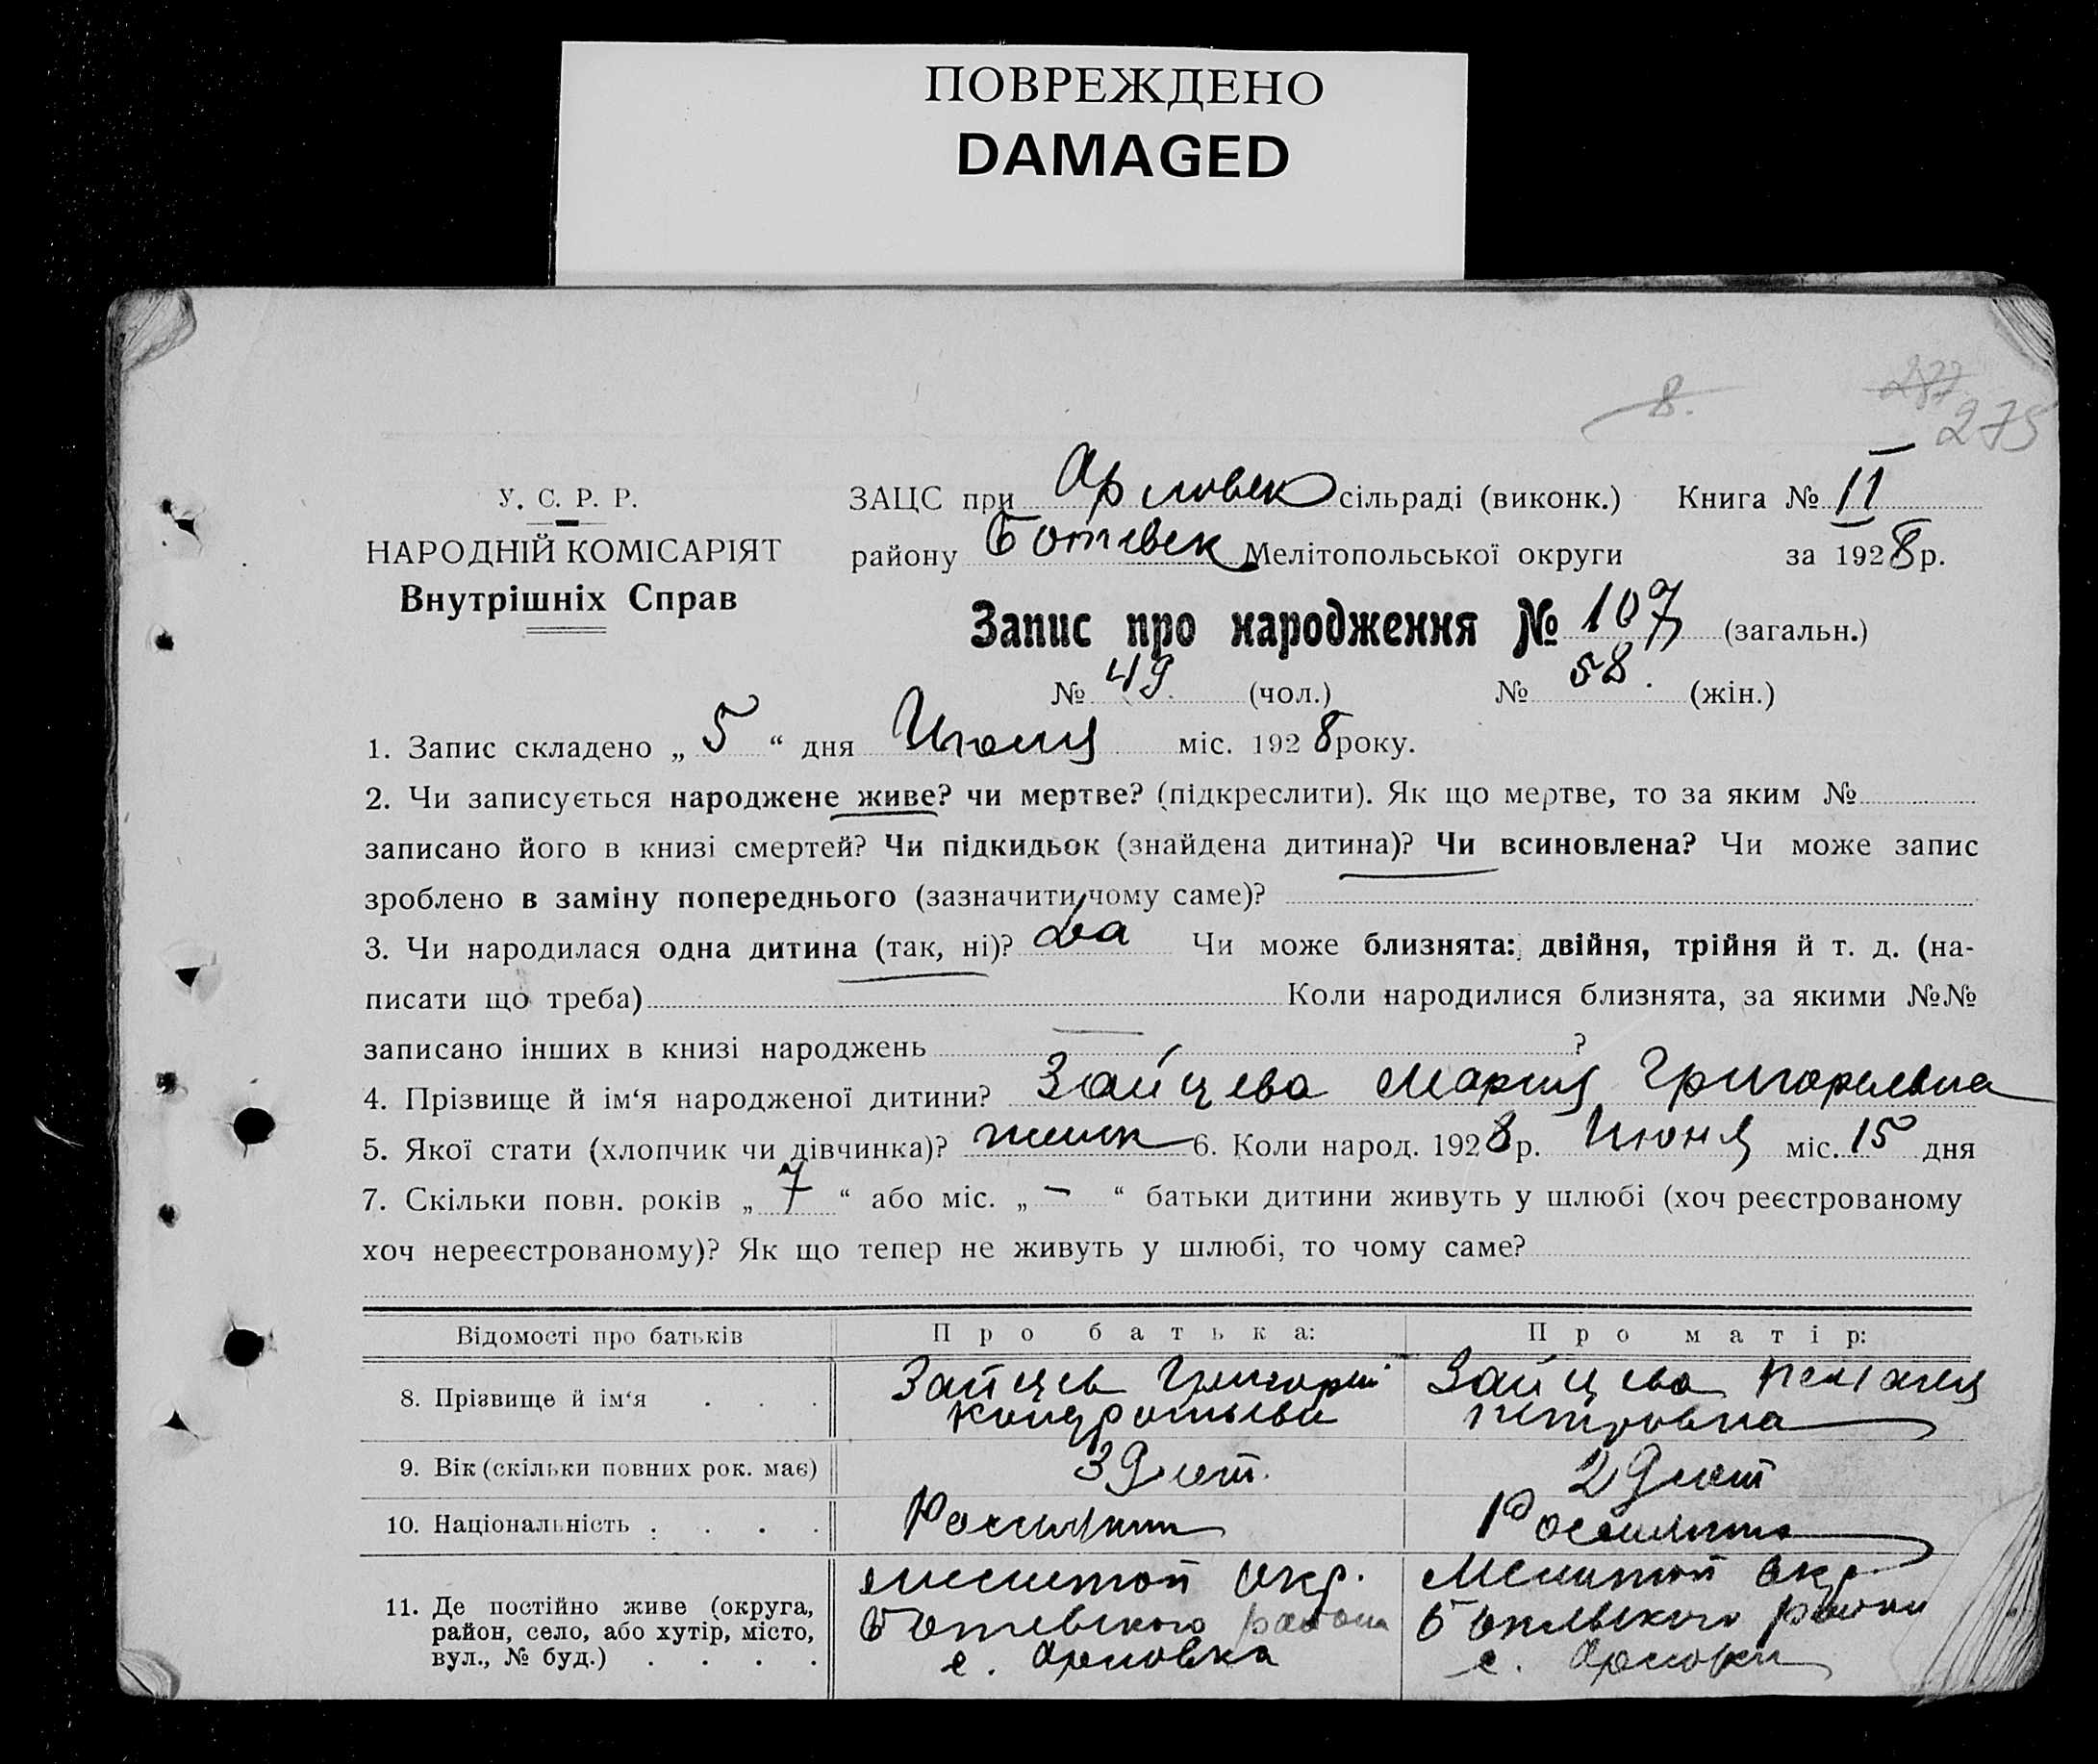 ПОВРЕЖДЕНО
DAMAGED
8.
277
275
У. С. Р. Р.
НАРОДНІЙ КОМІСАРІЯТ
Внутрішніх Справ
ЗАЦС при Орловск сільраді (виконк.) Книга № II
району Ботевск Мелітопольської округи за 1928 р.
Запис про народження № 107 (загальн.)
№ 49. (чол.) № 58. (жін.)
1. Запис складено „ 5 “ дня Июля міс. 1928 року.
2. Чи записується народжене живе? чи мертве? (підкреслити). Як що мертве, то за яким №
записано його в книзі смертей? Чи підкидьок (знайдена дитина)? Чи всиновлена? Чи може запис
зроблено в заміну попереднього (зазначити чому саме)?
3. Чи народилася одна дитина (так, ні)? да Чи може близнята: двійня, трійня й т. д. (на-
писати що треба) Коли народилися близнята, за якими №№
записано інших в книзі народжень —?
4. Прізвище й ім‘я народженої дитини? Зайцева Мария Григорьевна
5. Якої стати (хлопчик чи дівчинка)? женск 6. Коли народ. 1928 р. Июня міс. 15 дня
7. Скільки повн. років „ 7 “ або міс. „ — “ батьки дитини живуть у шлюбі (хоч реєстрованому
хоч нереєстрованому)? Як що тепер не живуть у шлюбі, то чому саме?
Відомості про батьків Про батька: Про матір:
8. Прізвище й ім‘я . . . Зайцев Григорий Зайцева Пелагея
Кондратьеви Петровна
9. Вік (скільки повних рок. має) 39 лет. 29 лет
10. Національність . . . .
11. Де постійно живе (округа, район, село, або хутір, місто, вул., № буд.) . . . .
Мелитоп окр. Мелитоп окр.
Ботевского района Ботевского района
с. Орловка с. Орловка